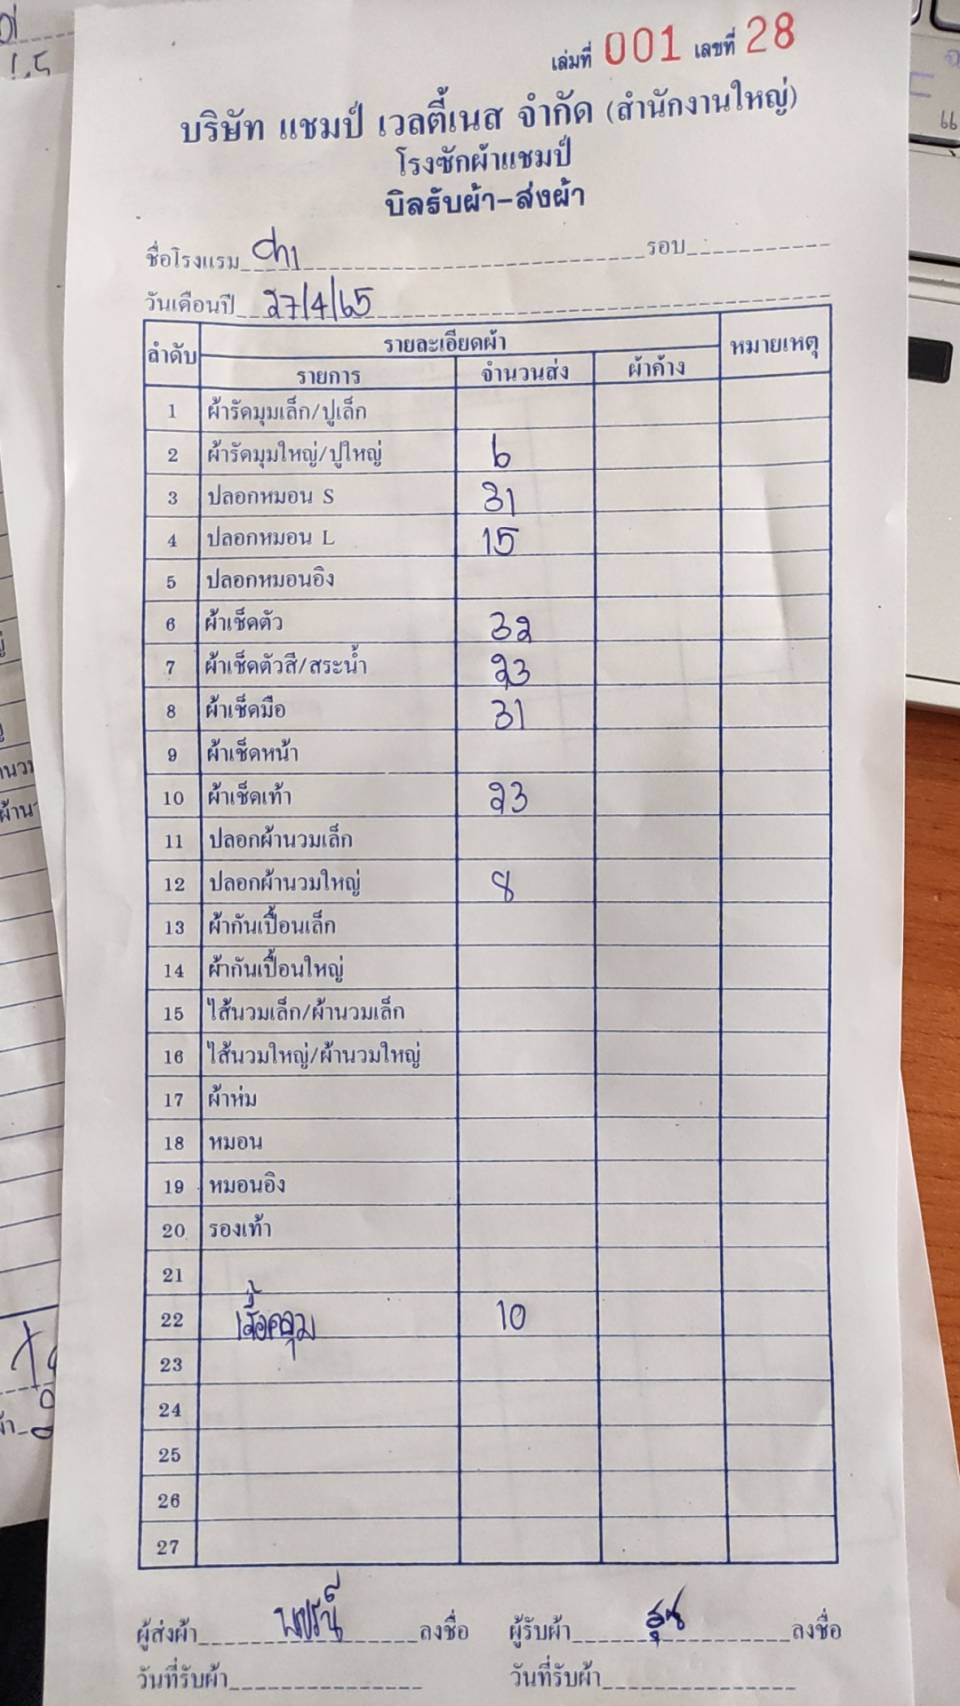 เล่มที่ 001 เลขที่ 28
บริษัท แชมป์ เวลตี้เนส จำกัด (สำนักงานใหญ่)
โรงซักผ้าแชมป์
บิลรับผ้า-ส่งผ้า
ชื่อโรงแรม chi รอบ
วันเดือนปี 27/4/65
ลำดับ รายละเอียดผ้า หมายเหตุ
รายการ จำนวนส่ง ผ้าค้าง
1 ผ้ารัดมุมเล็ก/ปูเล็ก
2 ผ้ารัดมุมใหญ่/ปูใหญ่ 6
3 ปลอกหมอน S 31
4 ปลอกหมอน L 15
5 ปลอกหมอนอิง
6 ผ้าเช็ดตัว 32
7 ผ้าเช็ดตัวสี/สระน้ำ 23
8 ผ้าเช็ดมือ 31
9 ผ้าเช็ดหน้า
10 ผ้าเช็ดเท้า 23
11 ปลอกผ้านวมเล็ก
12 ปลอกผ้านวมใหญ่ 8
13 ผ้ากันเปื้อนเล็ก
14 ผ้ากันเปื้อนใหญ่
15 ไส้นวมเล็ก/ผ้านวมเล็ก
16 ไส้นวมใหญ่/ผ้านวมใหญ่
17 ผ้าห่ม
18 หมอน
19 หมอนอิง
20 รองเท้า
21
22 เสื้อคลุม 10
23
24
25
26
27
ผู้ส่งผ้า ลงชื่อ ผู้รับผ้า ลงชื่อ
วันที่รับผ้า วันที่รับผ้า